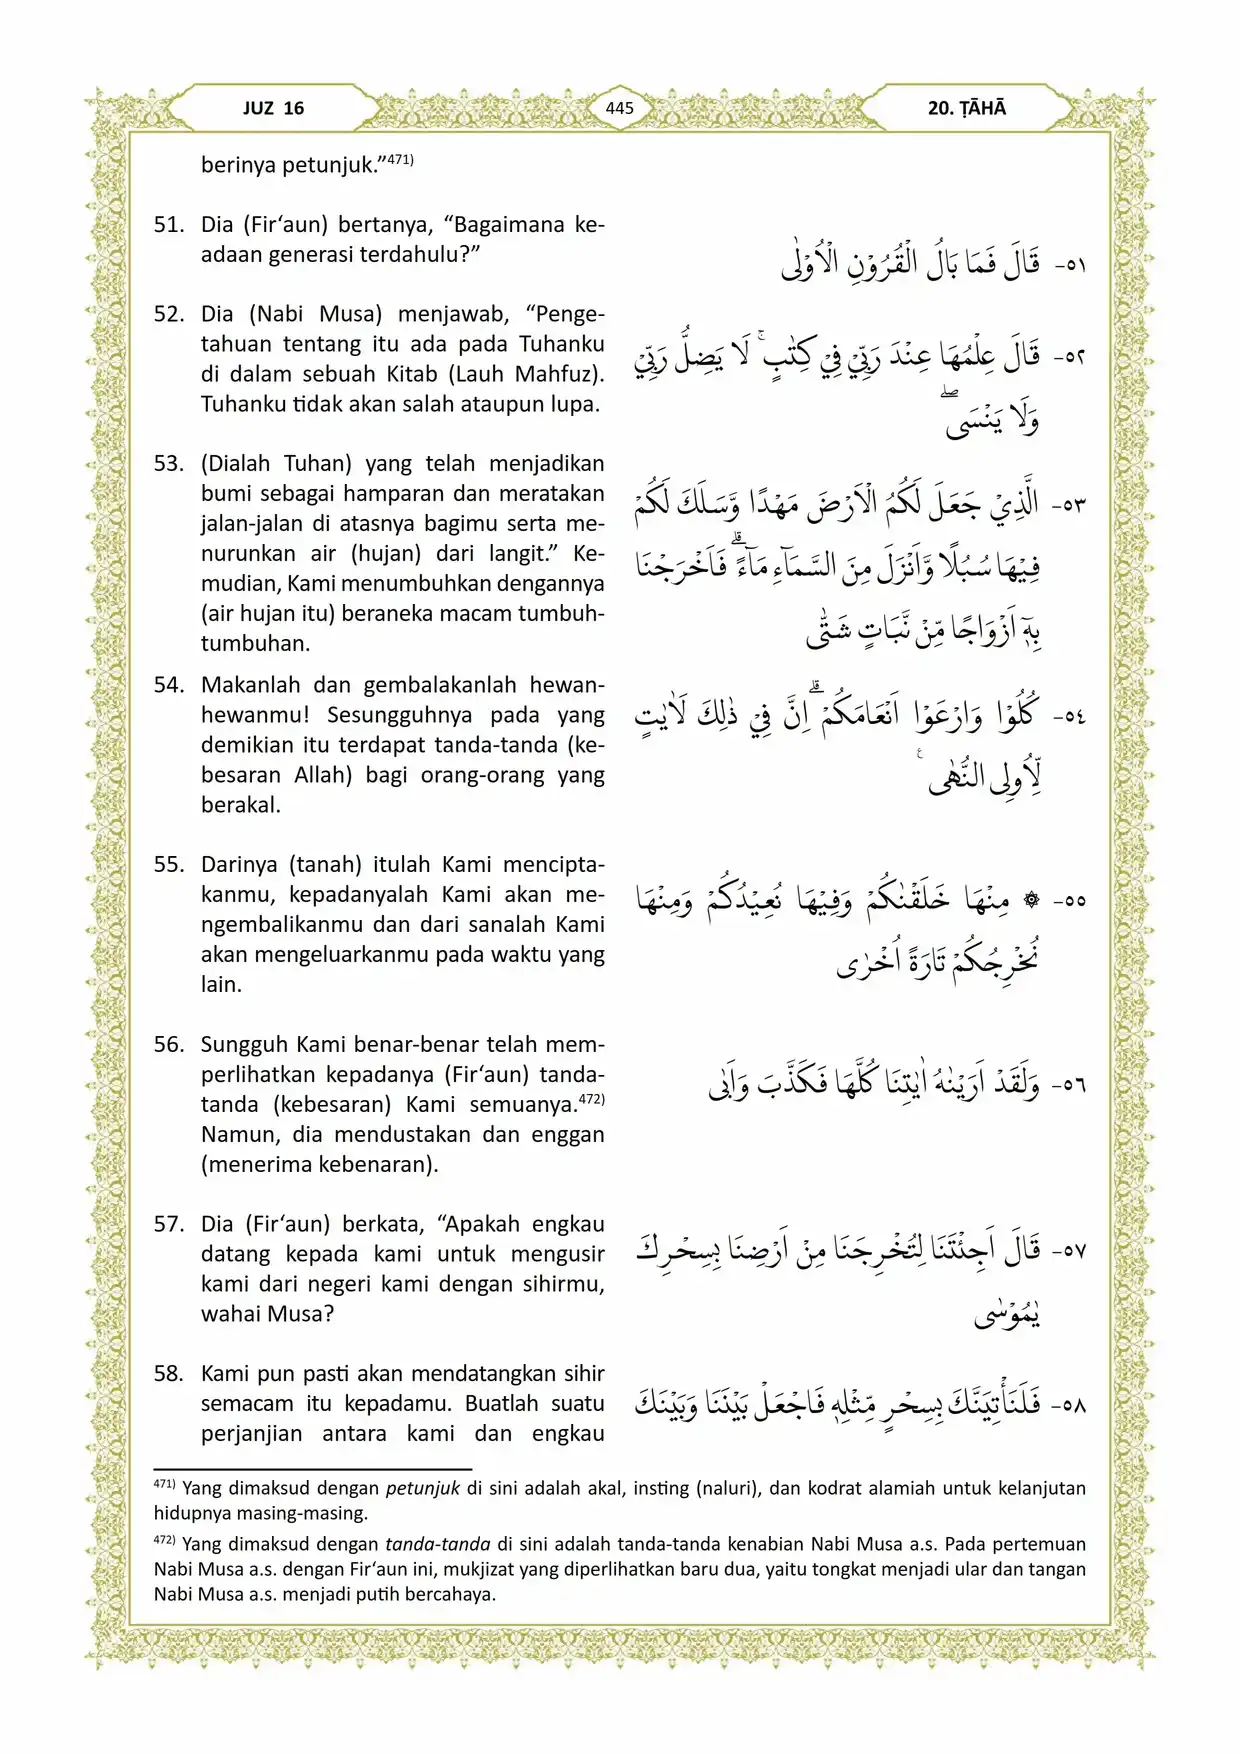 JUZ 16
445
20. ṬĀHĀ
berinya petunjuk.”471)
51. Dia (Fir‘aun) bertanya, “Bagaimana ke-
adaan generasi terdahulu?”
٥١- قَالَ فَمَا بَالُ الْقُرُوْنِ الْاُوْلٰى
52. Dia (Nabi Musa) menjawab, “Penge-
tahuan tentang itu ada pada Tuhanku
di dalam sebuah Kitab (Lauh Mahfuz).
Tuhanku tidak akan salah ataupun lupa.
٥٢- قَالَ عِلْمُهَا عِنْدَ رَبِّيْ فِيْ كِتٰبٍۚ لَا يَضِلُّ رَبِّيْ
وَلَا يَنْسَىۖ
53. (Dialah Tuhan) yang telah menjadikan
bumi sebagai hamparan dan meratakan
jalan-jalan di atasnya bagimu serta me-
nurunkan air (hujan) dari langit.” Ke-
mudian, Kami menumbuhkan dengannya
(air hujan itu) beraneka macam tumbuh-
tumbuhan.
٥٣- الَّذِيْ جَعَلَ لَكُمُ الْاَرْضَ مَهْدًا وَّسَلَكَ لَكُمْ
فِيْهَا سُبُلًا وَّاَنْزَلَ مِنَ السَّمَاۤءِ مَاۤءًۗ فَاَخْرَجْنَا
بِهٖٓ اَزْوَاجًا مِّنْ نَّبَاتٍ شَتّٰى
54. Makanlah dan gembalakanlah hewan-
hewanmu! Sesungguhnya pada yang
demikian itu terdapat tanda-tanda (ke-
besaran Allah) bagi orang-orang yang
berakal.
٥٤- كُلُوْا وَارْعَوْا اَنْعَامَكُمْۗ اِنَّ فِيْ ذٰلِكَ لَاٰيٰتٍ
لِّاُولِى النُّهٰى ࣖ
55. Darinya (tanah) itulah Kami mencipta-
kanmu, kepadanyalah Kami akan me-
ngembalikanmu dan dari sanalah Kami
akan mengeluarkanmu pada waktu yang
lain.
٥٥- ۞ مِنْهَا خَلَقْنٰكُمْ وَفِيْهَا نُعِيْدُكُمْ وَمِنْهَا
نُخْرِجُكُمْ تَارَةً اُخْرٰى
56. Sungguh Kami benar-benar telah mem-
perlihatkan kepadanya (Fir‘aun) tanda-
tanda (kebesaran) Kami semuanya.472)
Namun, dia mendustakan dan enggan
(menerima kebenaran).
٥٦- وَلَقَدْ اَرَيْنٰهُ اٰيٰتِنَا كُلَّهَا فَكَذَّبَ وَاَبٰى
57. Dia (Fir‘aun) berkata, “Apakah engkau
datang kepada kami untuk mengusir
kami dari negeri kami dengan sihirmu,
wahai Musa?
٥٧- قَالَ اَجِئْتَنَا لِتُخْرِجَنَا مِنْ اَرْضِنَا بِسِحْرِكَ
يٰمُوْسٰى
58. Kami pun pasti akan mendatangkan sihir
semacam itu kepadamu. Buatlah suatu
perjanjian antara kami dan engkau
٥٨- فَلَنَأْتِيَنَّكَ بِسِحْرٍ مِّثْلِهٖ فَاجْعَلْ بَيْنَنَا وَبَيْنَكَ
471) Yang dimaksud dengan petunjuk di sini adalah akal, insting (naluri), dan kodrat alamiah untuk kelanjutan
hidupnya masing-masing.
472) Yang dimaksud dengan tanda-tanda di sini adalah tanda-tanda kenabian Nabi Musa a.s. Pada pertemuan
Nabi Musa a.s. dengan Fir‘aun ini, mukjizat yang diperlihatkan baru dua, yaitu tongkat menjadi ular dan tangan
Nabi Musa a.s. menjadi putih bercahaya.